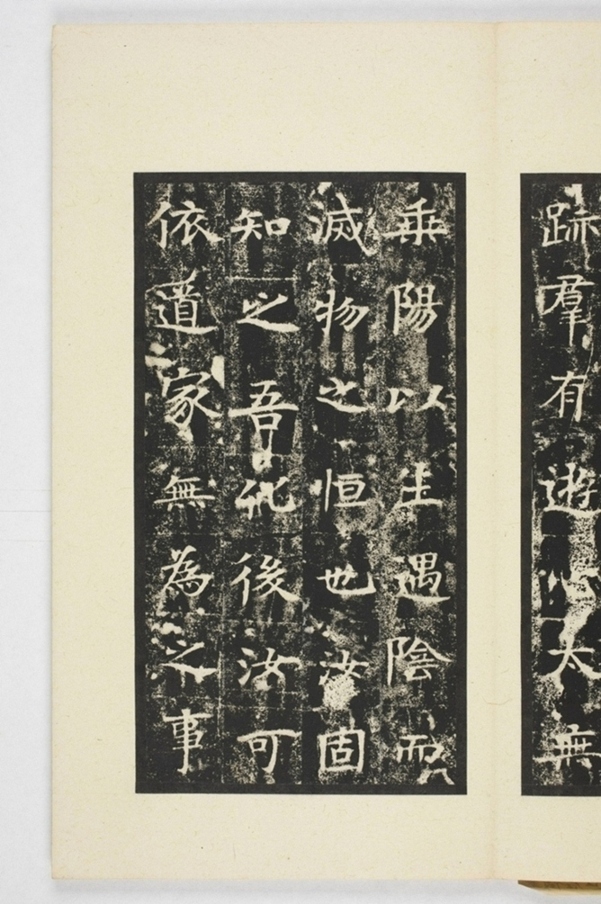 跡羣有遊心太無
乗陽以生遇陰而
滅物之恒也汝固
知之吾化後汝可
依道家無為之事